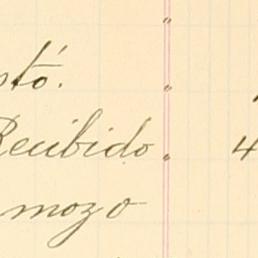 stó.
Recibido. 4
mozo